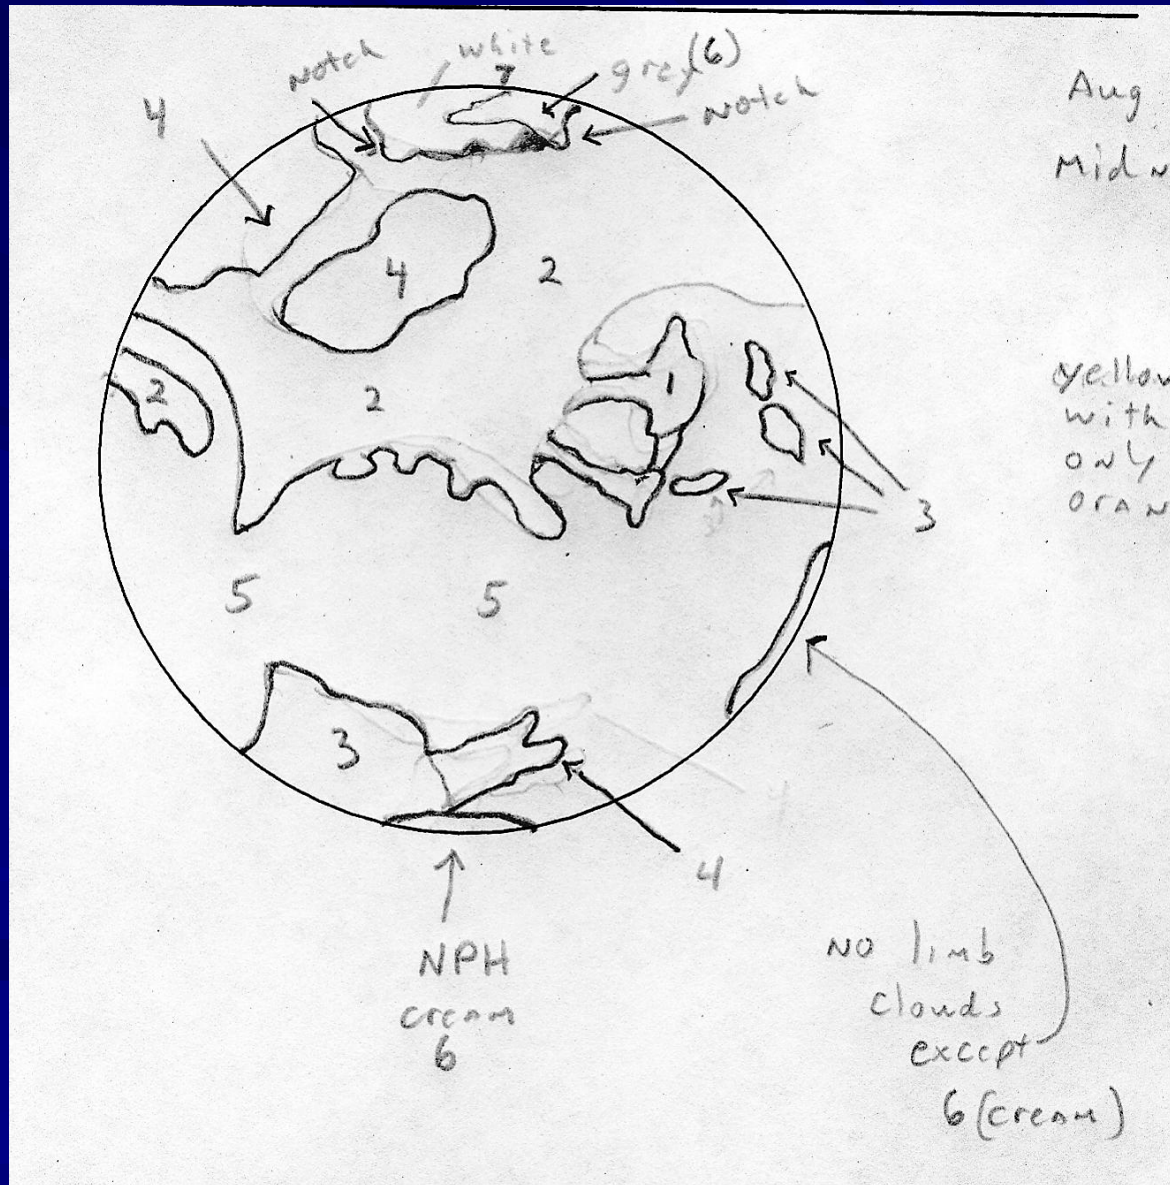 white
7
grey (6)
Notch
Notch
4
Aug
Mid N
4
2
2
2
1
yellow
with
only
oran
3
5
5
3
4
4
NPH
cream
6
NO limb
clouds
except
6 (cream)